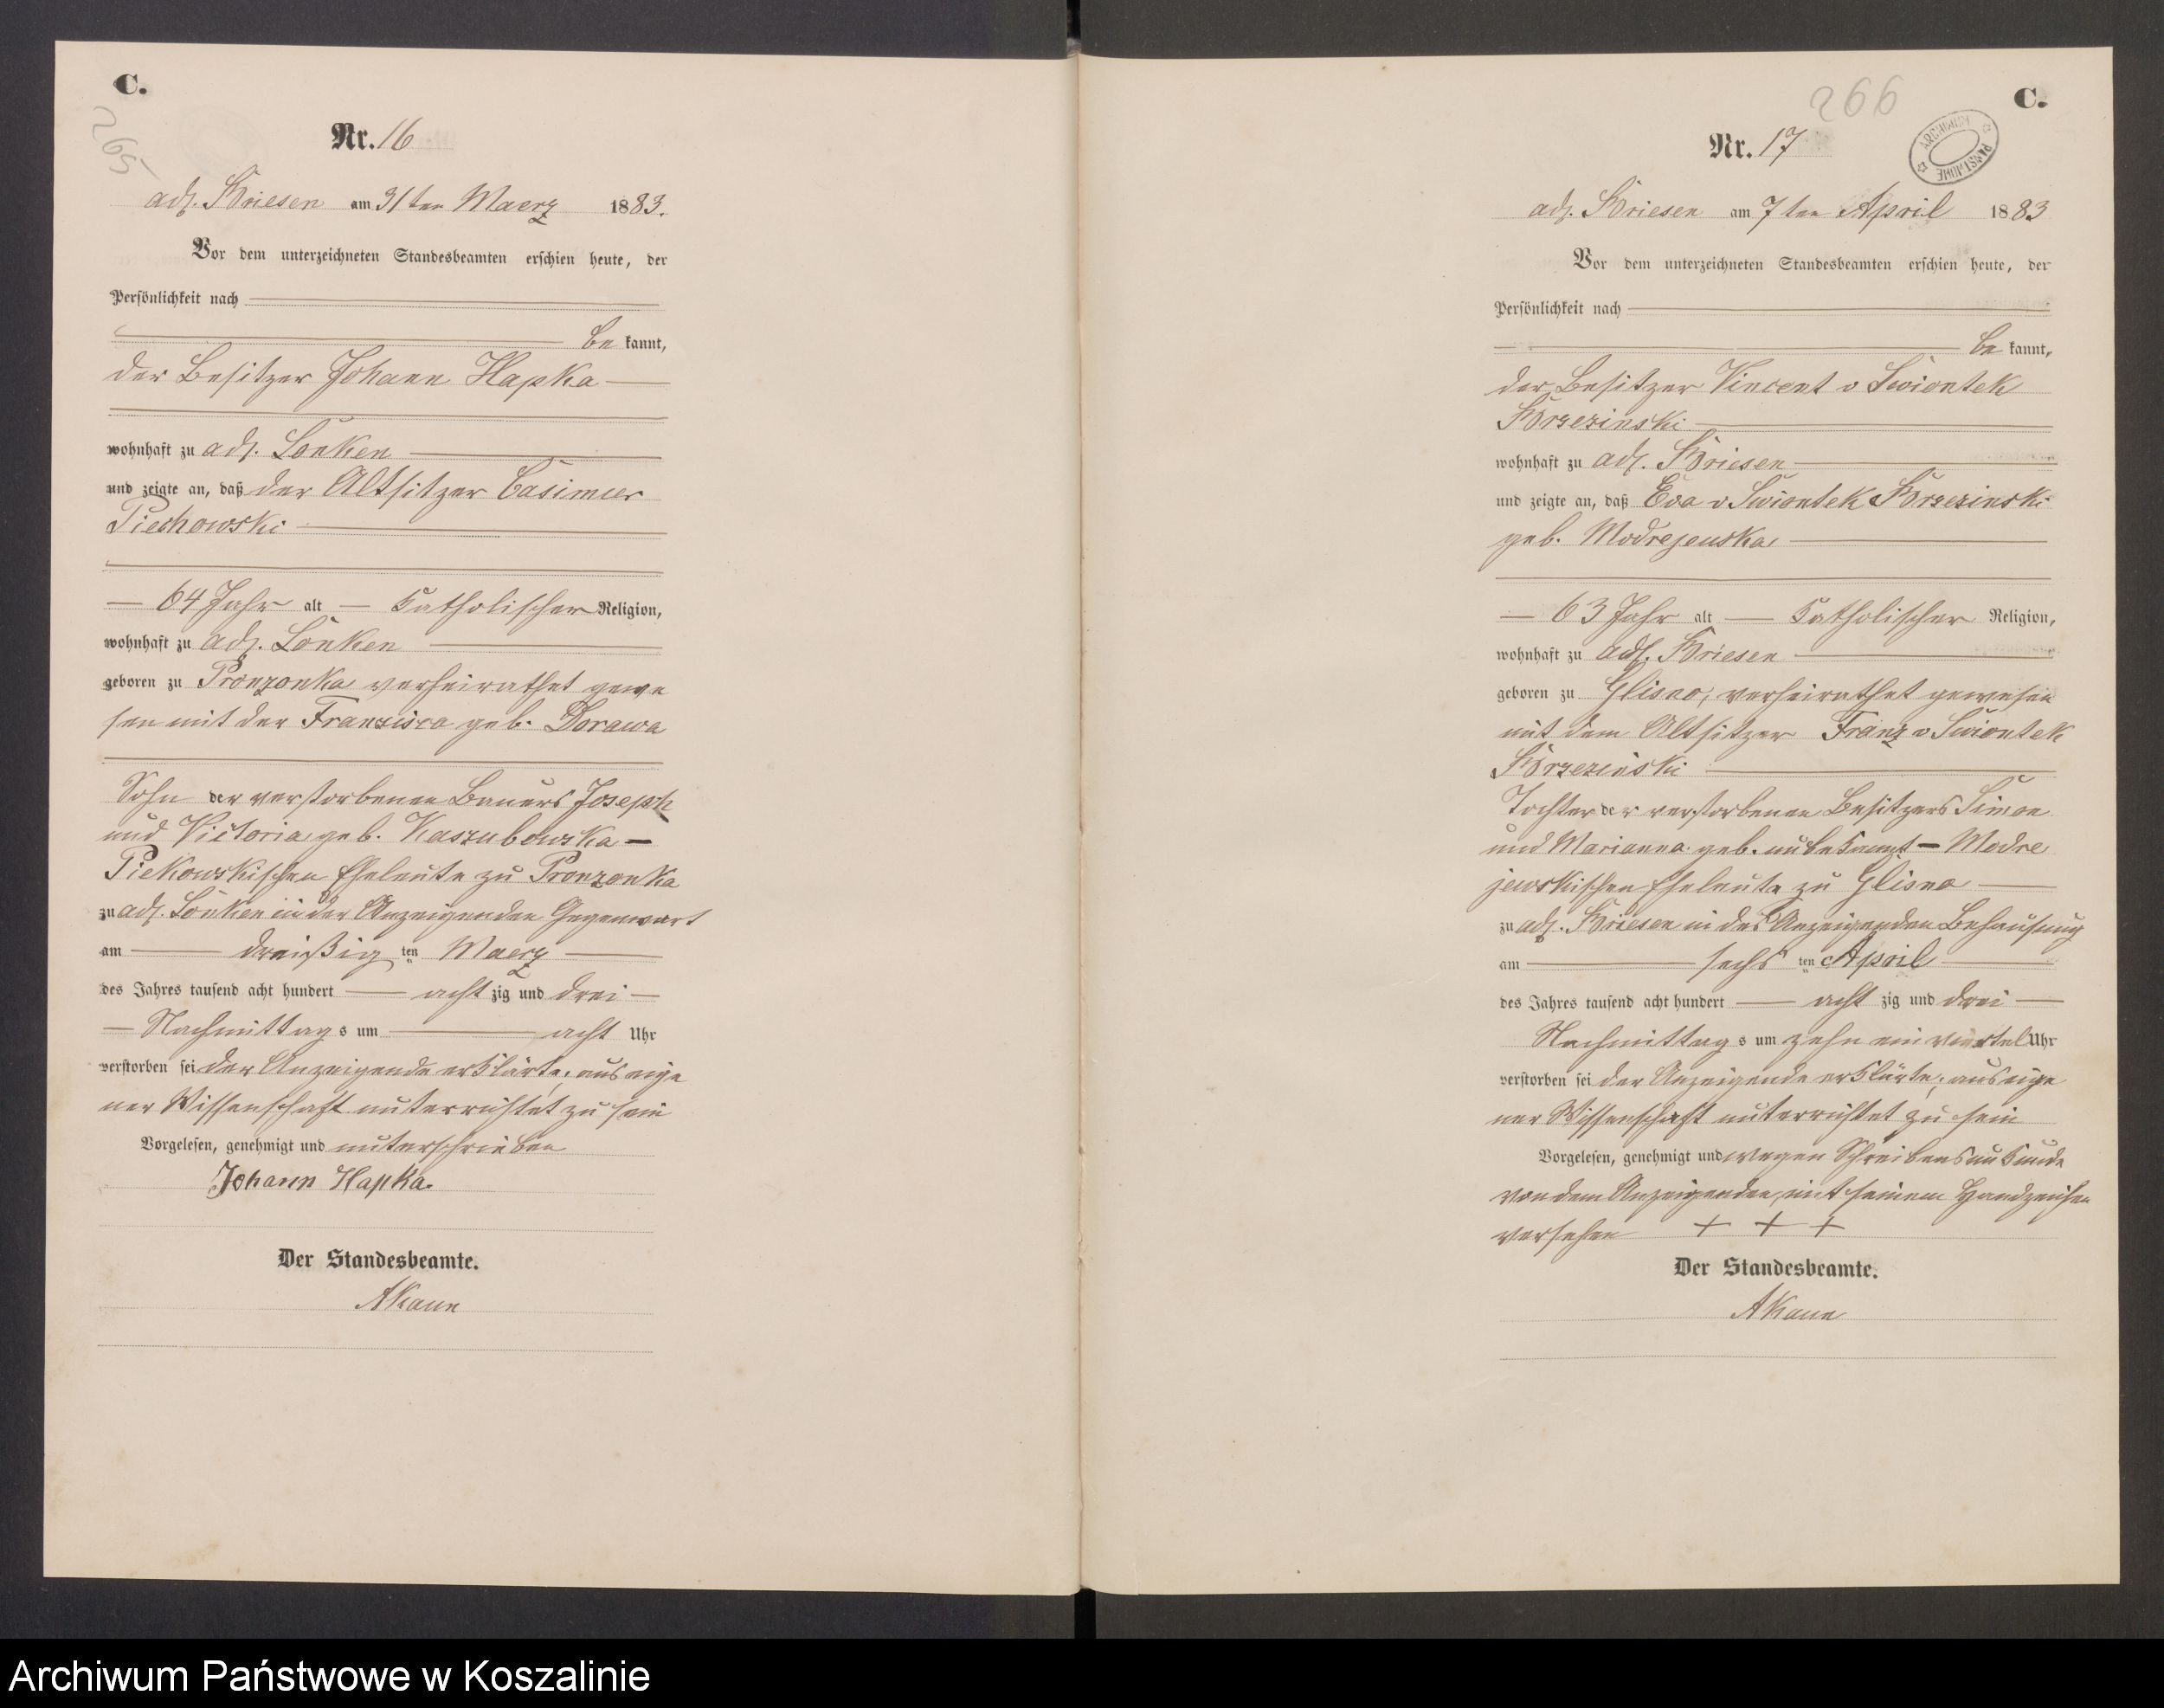 C.
265
Nr. 16
adl. Briesen am 31ten Maerz 1883.
Vor dem unterzeichneten Standesbeamten erschien heute, der
Persönlichkeit nach
be kannt,
der Besitzer Johann Hapka
wohnhaft zu adl. Lonken
und zeigte an, daß der Altsitzer Casimier
Piechowski
64 Jahr alt katholischer Religion,
wohnhaft zu adl. Lonken
geboren zu Pronzonka verheirathet gewe
sen mit der Franzisca geb. Dorawa
Sohn der verstorbenen Bauers Joseph
und Victoria geb. Kaszubowska –
Piekowskischen Eheleute zu Pronzonka
zu adl. Lonken in der Anzeigenden Gegenwart
am dreißig ten Maerz
des Jahres tausend acht hundert acht zig und drei
Nachmittag s um acht Uhr
verstorben sei der Anzeigende erklärte, aus eige
ner Wissenschaft unterrichtet zu sein
Vorgelesen, genehmigt und unterschrieben
Johann Hapka.
Der Standesbeamte.
AKaun
266
C.
Nr. 17
ARCHIWUM PAŃSTWOWE
adl. Briesen am 7ten April 1883
Vor dem unterzeichneten Standesbeamten erschien heute, der
Persönlichkeit nach
be kannt,
der Besitzer Vincent v Swiontek
Brzezinski
wohnhaft zu adl. Briesen
und zeigte an, daß Eva v Swiontek Brzezinski
geb. Modrejewska
63 Jahr alt katholischer Religion,
wohnhaft zu adl. Briesen
geboren zu Glisno, verheirathet gewesen
mit dem Altsitzer Franz v Swiontek
Brzezinski
Tochter der verstorbenen Besitzers Simon
und Marianna geb. unbekannt – Modre
jewskischen Eheleute zu Glisno
zu adl. Briesen in des Anzeigenden Behausung
am sechs ten April
des Jahres tausend acht hundert acht zig und drei
Nachmittag s um zehn ein viertel Uhr
verstorben sei der Anzeigende erklärte, aus eige
ner Wissenschaft unterrichtet zu sein
Vorgelesen, genehmigt und wegen Schreibensunkunde
von dem Anzeigenden mit seinem Handzeichen
versehen + + +
Der Standesbeamte.
AKaun
Archiwum Państwowe w Koszalinie